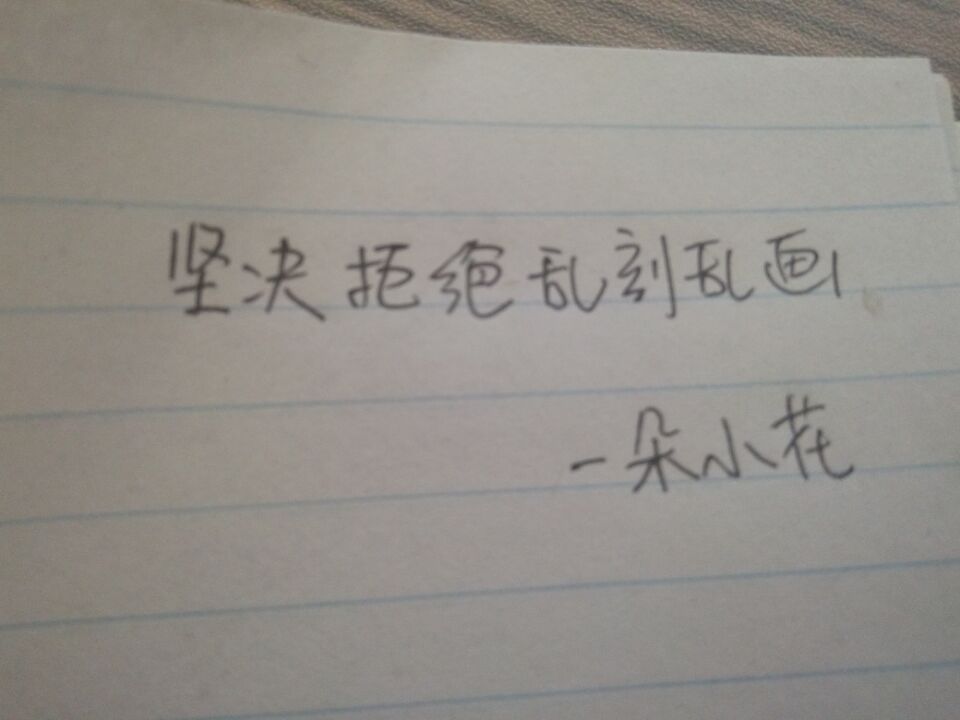 坚决拒绝乱刻乱画
一朵小花